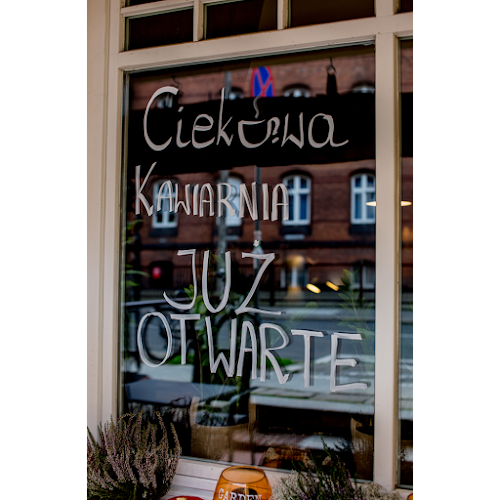 Ciekowa
KAWIARNIA
JUZ
OTWARTE
GARDEN